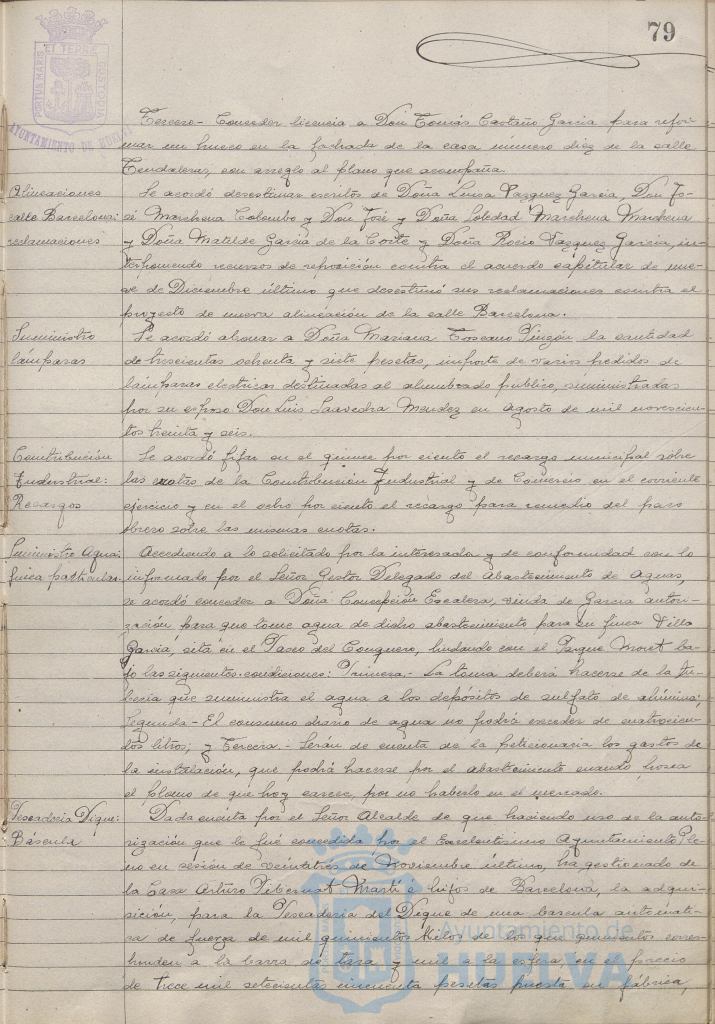 79
PORTUS MARIS ET TERRE CUSTODIA
AYUNTAMIENTO DE HUELVA
Tercero- Conceder licencia a Don Tomás Castaño Garcia para refor-
mar un hueco en la fachada de la casa número diez de la calle
Tendaleras, con arreglo al plano que acompaña.
Alineaciones
calle Barcelona:
reclamaciones
Se acordó desestimar escritos de Doña Luisa Vazquez Garcia, Don Jo-
sé Marchena Colombo y Don José y Doña Soledad Marchena Marchena
y Doña Matilde Garcia de la Corte y Doña Rocio Vazquez Garcia, in-
terponiendo recursos de reposición contra el acuerdo capitular de nue-
ve de Diciembre último que desestimó sus reclamaciones contra el
proyecto de nueva alineación de la calle Barcelona.
Suministro
lámparas
Se acordó abonar a Doña Mariana Toscano Pinzón la cantidad
de trescientas ochenta y siete pesetas, importe de varios pedidos de
lámparas electricas destinadas al alumbrado público, suministradas
por su esposo Don Luis Saavedra Mendez en Agosto de mil novescien-
tos treinta y seis.
Contribución
Industrial:
Recargos
Se acordó fijar en el quince por ciento el recargo municipal sobre
las cuotas de la Contribución Industrial y de Comercio en el corriente
ejercicio y en el ocho por ciento el recargo para remedio del paro
obrero sobre las mismas cuotas.
Suministro Agua:
finca particular.
Accediendo a lo solicitado por la interesada y de conformidad con lo
informado por el Señor Gestor Delegado del Abastecimiento de Aguas,
se acordó conceder a Doña Concepción Escalera, viuda de Garcia autori-
zación para que tome agua de dicho abastecimiento para su finca Villa
Garcia, sita en el Paseo del Conquero, lindando con el Parque Moret ba-
jo las siguientes condiciones: Primera.- La toma deberá hacerse de la tu-
bería que suministra el agua a los depósitos de sulfato de alúmina;
Segunda- El consumo diario de agua no podrá exceder de cuatrocien-
tos litros; y Tercera.- Serán de cuenta de la peticionaria los gastos de
la instalación, que podrá hacerse por el abastecimiento cuando posea
el Plomo de que hoy carece, por no haberlo en el mercado.
Pescaderia Dique:
Báscula
Dada cuenta por el Señor Alcalde de que haciendo uso de la auto-
rización que le fué concedida por el Excelentísimo Ayuntamiento Ple-
no en sesión de veintitrés de Noviembre último, ha gestionado de
la Casa Arturo Pibernat Martí é hijos de Barcelona, la adqui-
sición, para la Pescaderia del Dique de una bascula automati-
ca de fuerza de mil quinientos kilos de los que quinientos corres-
ponden a la barra de tara y mil a la esfera, en el precio
de trece mil setecientas cincuenta pesetas puesta en fábrica,
Ayuntamiento de
HUELVA